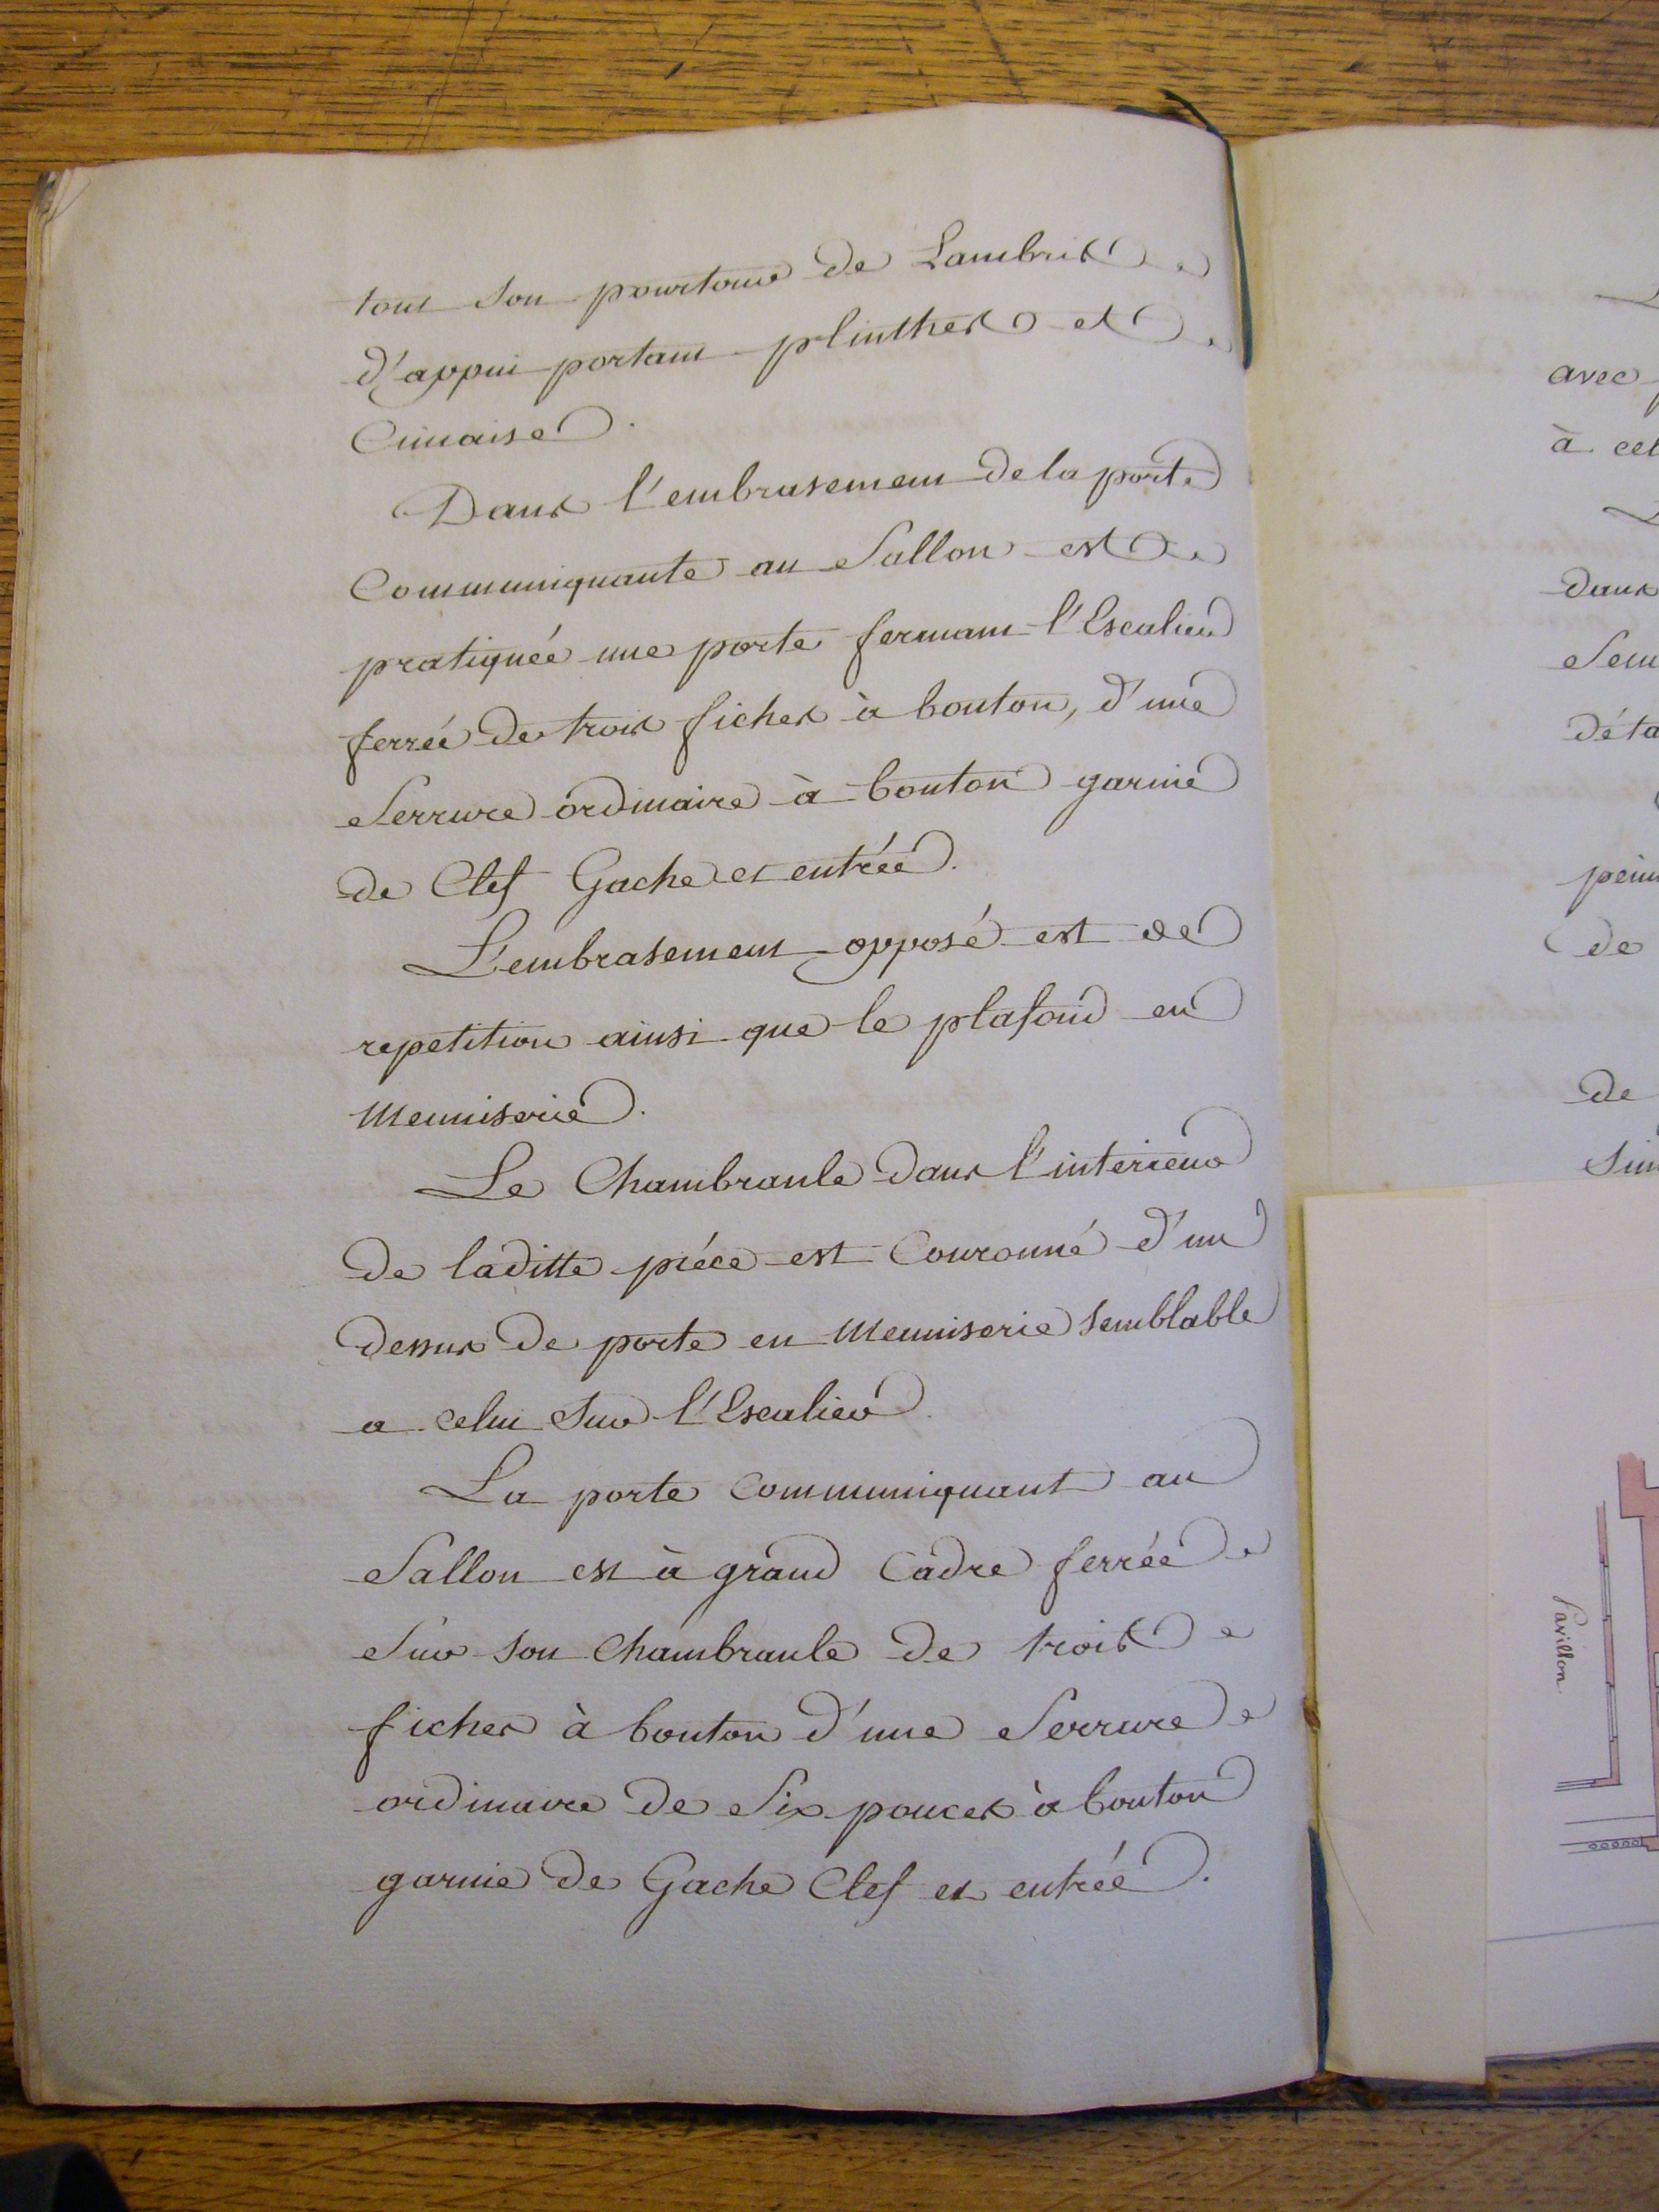 tout son pourtour de Lambris
d'appui portant plinthes et
Cimaise.
Dans l'embrasement de la porte
Communiquante au Sallon est
pratiquée une porte fermant l'Escalier
ferrée de trois fiches à bouton, d'une
Serrure ordinaire à bouton garnie
de Clef Gache et entrée.
L'embrasement opposé est de
repetition ainsi que le plafond en
Menuiserie.
Le Chambranle dans l'interieur
de laditte piéce est Couronné d'un
dessus de porte en Menuiserie semblable
a celui Sur l'Escalier.
La porte Communiquant au
Sallon est à grand Cadre ferrée
Sur son Chambranle de trois
fiches à bouton d'une Serrure
ordinaire de Six pouces à bouton
garnie de Gache Clef et entrée.
avec
à cet
dans
Sem
déta
de
de
Sim
Pavillon.